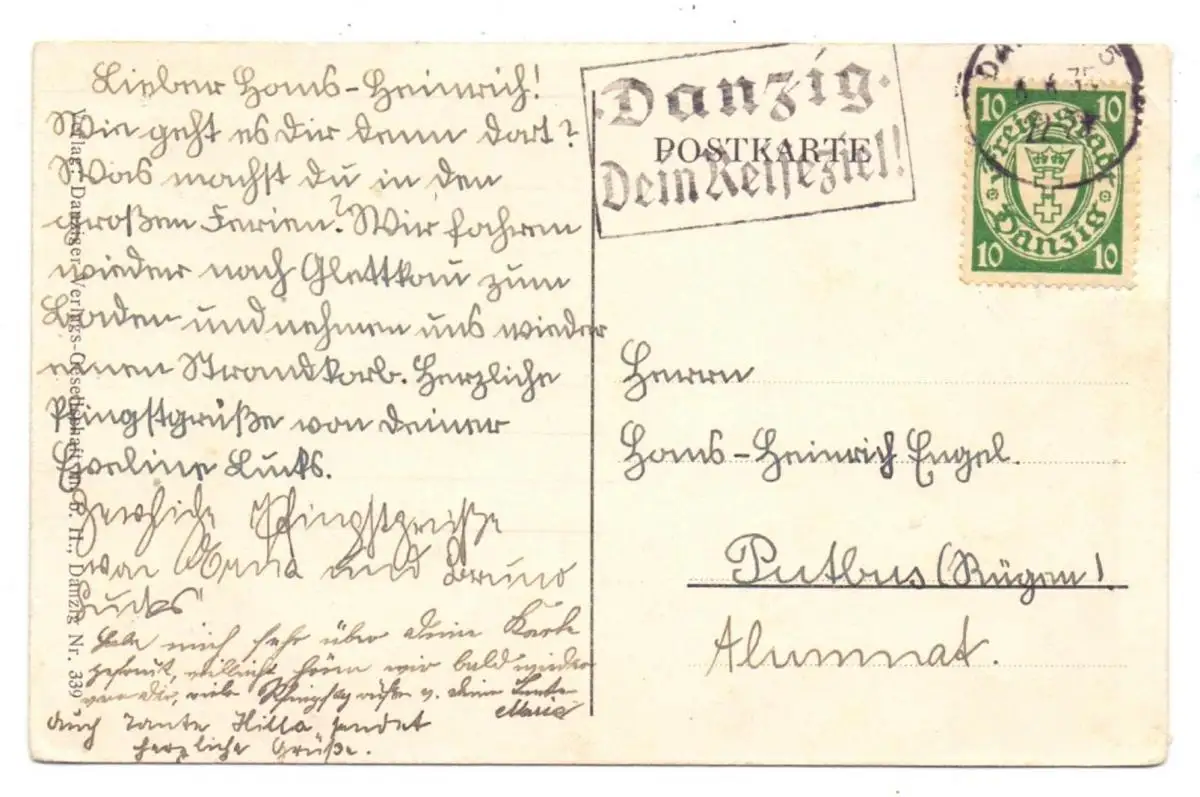 Lieber Hans-Heinrich!
Wie geht es dir denn dort?
Was machst du in den
großen Ferien? Wir fahren
wieder nach Glettkau zum
Baden und nehmen uns wieder
einen Strandkorb. Herzliche
Pfingstgrüße von deiner
Eveline Lucks.
Herzliche Pfingstgrüße
von Erna und Bruno
Lucks
Habe mich sehr über deine Karte
gefreut, vielleicht hören wir bald wieder
von dir, viele Pfingstgrüße v. deine Tante
Maria
Auch Tante Hilla sendet
herzliche Grüße.
Verlag: Danziger Verlags-Gesellschaft m. b. H., Danzig Nr. 339
Danzig.
POSTKARTE
Dein Reiseziel!
10 10
Freie Stadt
Danzig
10 10
Herrn
Hans-Heinrich Engel.
Putbus (Rügen)
Alumnat.